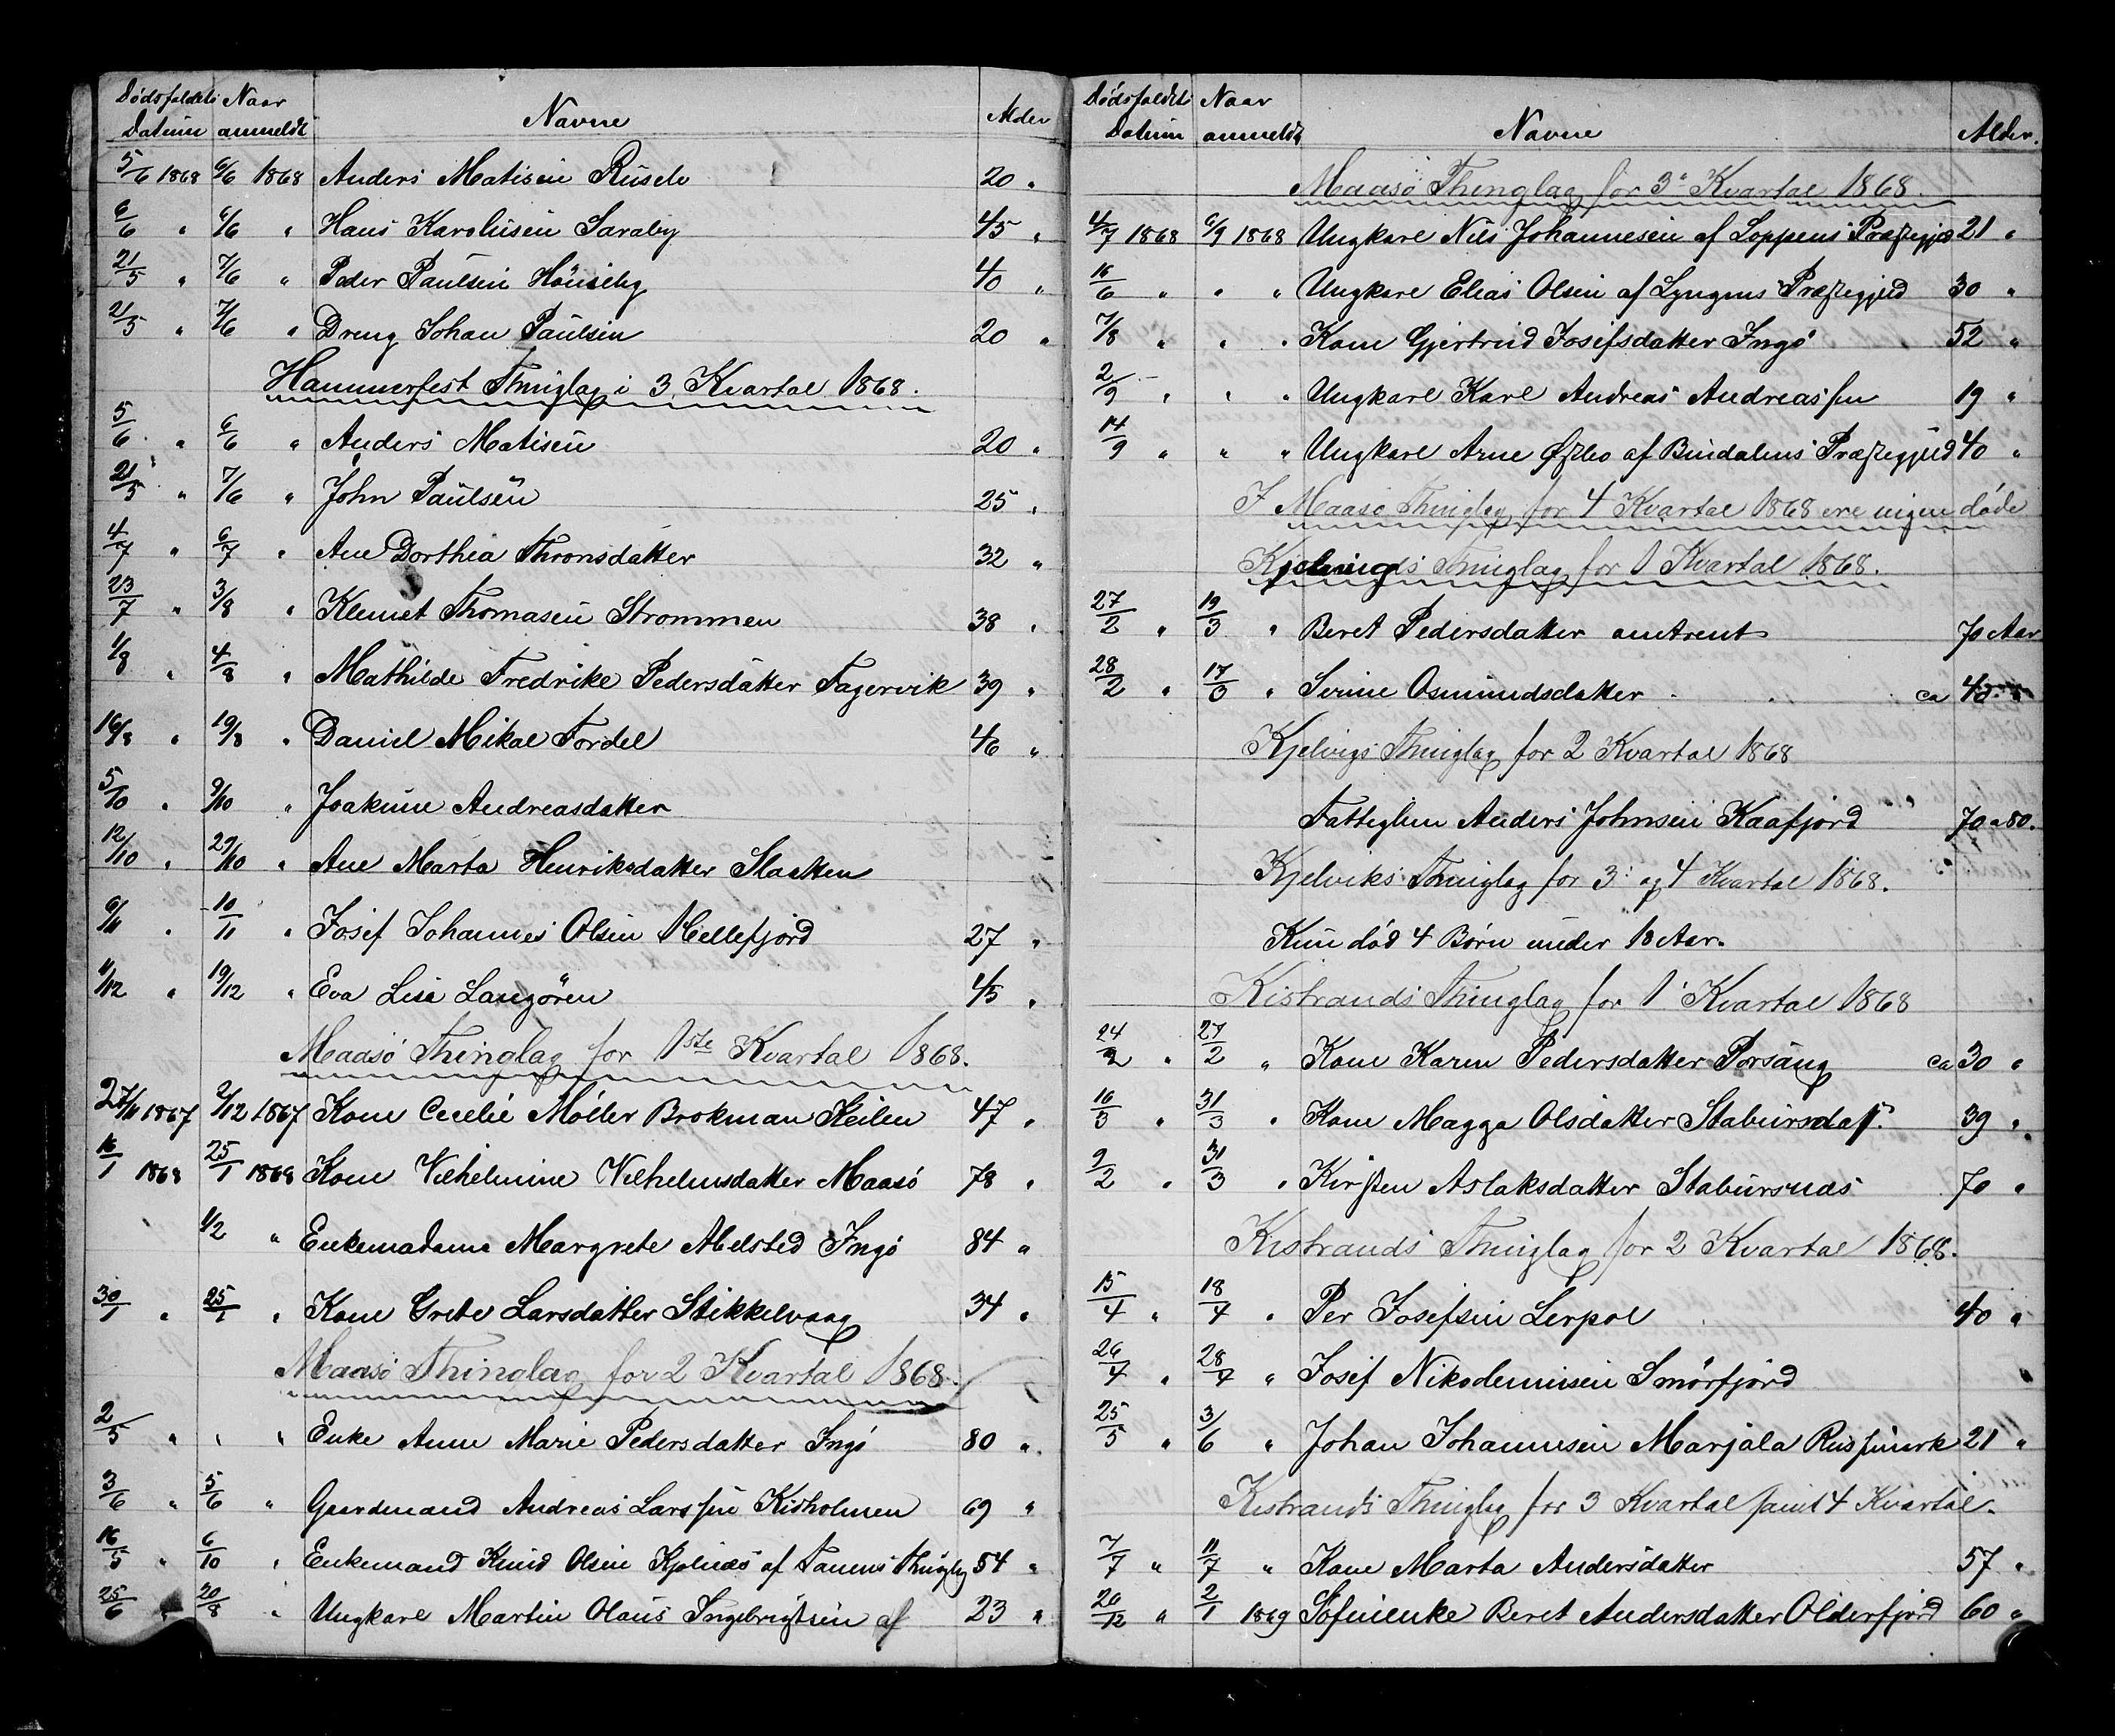 Dødsfaldets Naar
Datum anmeldt Navne Alder
5/6 1868 6/6 1868 Anders Matisen 20 "
6/6 " 6/6 " Hans Karolusen Saraby 45 "
21/5 " 7/6 " Peder Paulsen 40 "
21/5 " 7/6 " Dreng Johan Paulsen 20 "
Hammerfest Thinglag i 3. Kvartal 1868.
5/6 " 6/6 " Anders Matisen 20 "
21/5 " 7/6 " John Paulsen 25 "
4/7 " 6/7 " Ane Dorthea Thronsdatter 32 "
23/7 " 3/8 " Klemet Thomasen Strommen 38 "
1/8 " 4/8 " Mathilde Fredrike Pedersdatter Fagervik 39 "
16/8 " 19/8 " Daniel Mikal Fordel 46 "
5/10 " 9/10 " Joakime Andreasdatter
12/10 " 29/10 " Ane Marta Henriksdatter Slaatten
6/11 " 10/11 " Josef Johannes Olsen Hellefjord 27 "
1/12 " 19/12 " Eva Lisa Langören 45 "
Maasö Thinglag for 1ste Kvartal 1868.
27/11 1867 9/12 1867 Kone Cecelie Möller Brokman Keilen 47 "
16/1 1868 25/1 1868 Kone Vilhelmine Vilhelmsdatter Maasö 78 "
1/2 " Enkemadame Margrete Abelsted Ingö 84 "
30/1 " 25/1 " Kone Grete Larsdatter Stikkelvaag 34 "
Maasö Thinglag for 2 Kvartal 1868.
2/5 " " " Enke Anne Marie Pedersdatter Ingö 80 "
3/6 " 5/6 " Gaardmand Andreas Larssen Kisholmen 69 "
16/5 " 6/10 " Enkemand Knud Olsen af Tanens Thinglag 54 "
25/6 " 20/8 " Ungkarl Martin Olaus Ingebrigtsen af 23 "
Dødsfaldets Naar
Datum anmeldt Navne Alder.
Maasö Thinglag for 3' Kvartal 1868.
4/7 1868 6/9 1868 Ungkarl Nils Johannesen af Loppens Præstegjæ 21 "
16/6 " " " Ungkarl Elias Olsen af Lyngens Præstegjeld 30 "
7/8 " " " Kone Gjertrud Josefsdatter Ingö 52 "
2/9 " " " Ungkarl Karl Andreas Andreassen 19 "
14/9 " " " Ungkarl Arne af Bindalens Præstegjeld 40 "
I Maasö Thinglag for 4 Kvartal 1868 ere ingen döde
Kjelvigs Thinglag for 1 Kvartal 1868.
27/2 " 19/3 " Beret Pedersdatter omtrent 70 Aar
28/2 " 17/3 " Serine Osmundsdatter ca
Kjelvigs Thinglag for 2 Kvartal 1868
Fattiglem Anders Johnsen Kaafjord 70 a 80.
Kjelviks Thinglag for 3: og 4 Kvartal 1868.
Kun död 4 Börn under 10 Aar.
Kistrands Thinglag for 1' Kvartal 1868
24/2 " 27/2 " Kone Karen Pedersdatter Porsang ca 30 "
16/3 " 31/3 " Kone Magga Olsdatter 39 "
9/2 " 31/3 " Kirsten Aslaksdatter Stabursnæs 70 "
Kistrands Thinglag for 2 Kvartal 1868.
15/4 " 18/4 " Per Josefsen Lerpol 40 "
26/4 " 28/4 " Josef Nikodemusen Smörfjord
25/5 " 3/6 " Johan Johannesen Marjala 21 "
Kistrands Thinglag for 3 Kvartal samt 4 Kvartal.
7/7 " 11/7 " Kone Marta Andersdatter 57 "
26/12 " 2/1 1869 Sofinenke Beret Andersdatter Olderfjord 60 "